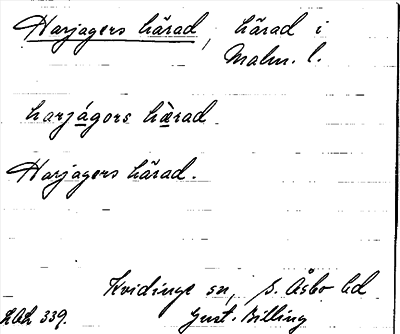 Harjagers härad, härad i
Malm. l.
harjágors hærad
Harjagers härad.
Kvidinge sn, S. Åsbo hd
Gust. Billing
339.